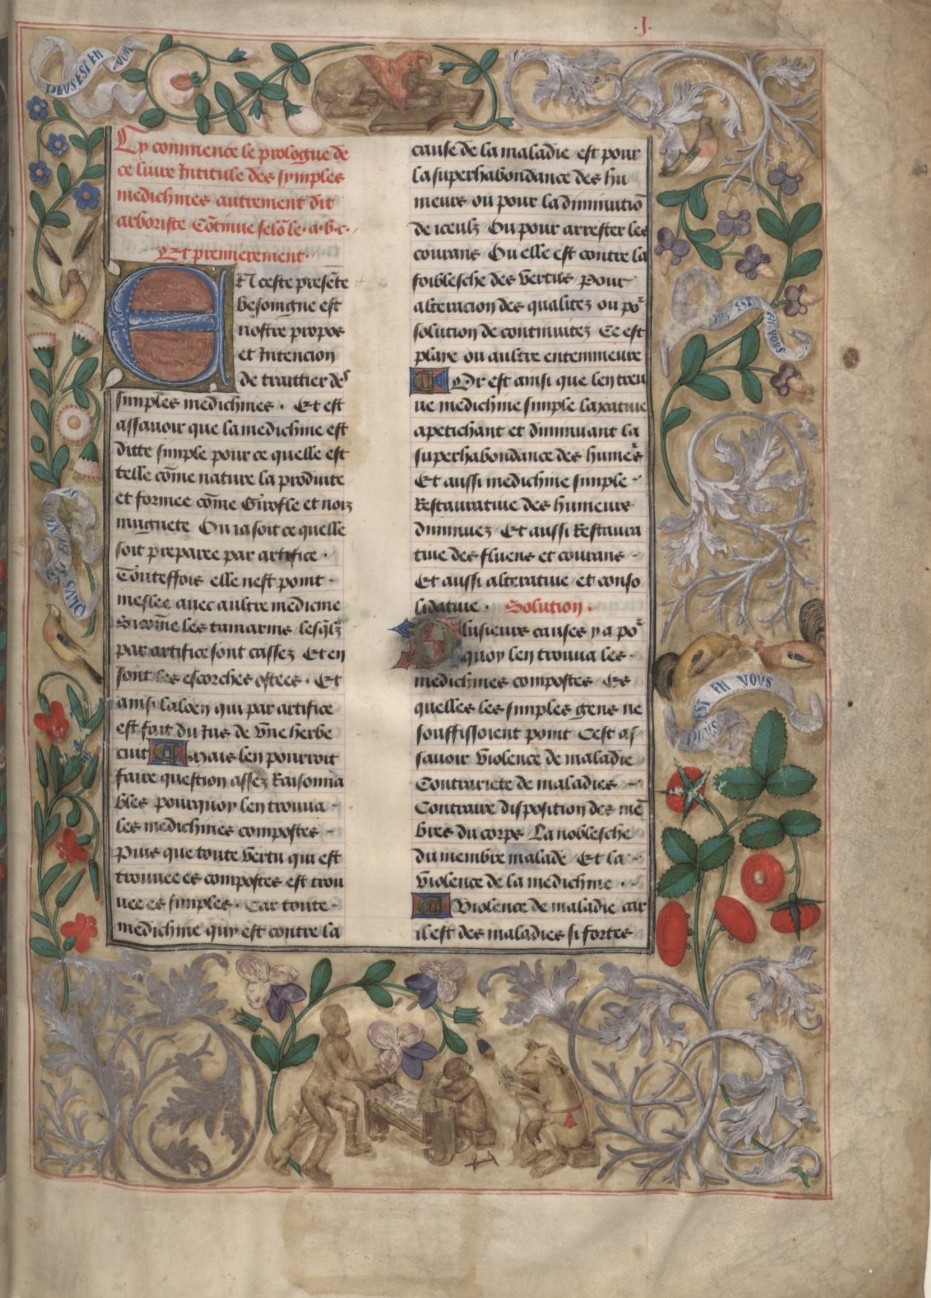 .j.
DEVS EST EN VOVS
Cy commence le prologue de
ce livre Intitule des symples
medichines autrement dit
arboriste Cõtinue selõ le .a.b.c.
Et premierement
EN ceste presẽte
besoingne est
nostre propos
et Intencion
de traittier des
simples medichines . Et est
assavoir que la medichine est
ditte simple pour ce quelle est
telle cõme nature la produite
et formee cõme Girofle et noiz
muguete Ou ia soit ce quelle
soit preparee par artifice .
Touteffois elle nest point
meslee avec aultre medicine
Si cõme les tamarins lesq̃lz
par artifice sont cassez Et en
sont les escorches ostees . Et
ainsi laloen qui par artifice
est fait du Jus de vne herbe
cuit Mais len pourroit
faire question assez Raisonna
bles pourquoy len trouva
les medichines compostes
Puis que toute vertu qui est
trouvee es compostes est trou
vee es simples . Car toute
medichine quy est contre la
cause de la maladie est pour
la superhabondance des hu
meurs ou pour la diminutiõ
de iceulz Ou pour arrester les
courans Ou elle est contre la
foiblesche des vertus Pour
alteracion des qualitez ou põ
solution de continuitez Ce est
playe ou aultre entemmeure
Or est ainsi que len treu
ve medichine simple laxative
apetichant et diminuant la
superhabondance des humẽs
Et aussi medichine simple
Restaurative des humeurs
diminuez Et aussi Restaura
tive des fluens et courans
Et aussi alterative et conso
lidative . Solution .
Plusieurs causes y a põ
quoy len trouva les
medichines compostes Es
quelles les simples gens ne
souffissoient point Cest as
savoir violence de maladie
Contrariete de maladies
Contraire disposition des mẽ
bres du corps La noblesche
du membre malade Et la
violence de la medichine .
Violence de maladie car
il est des maladies si fortes
DEVS EST EN VOVS
EST EN VOVS
EST EN VOVS